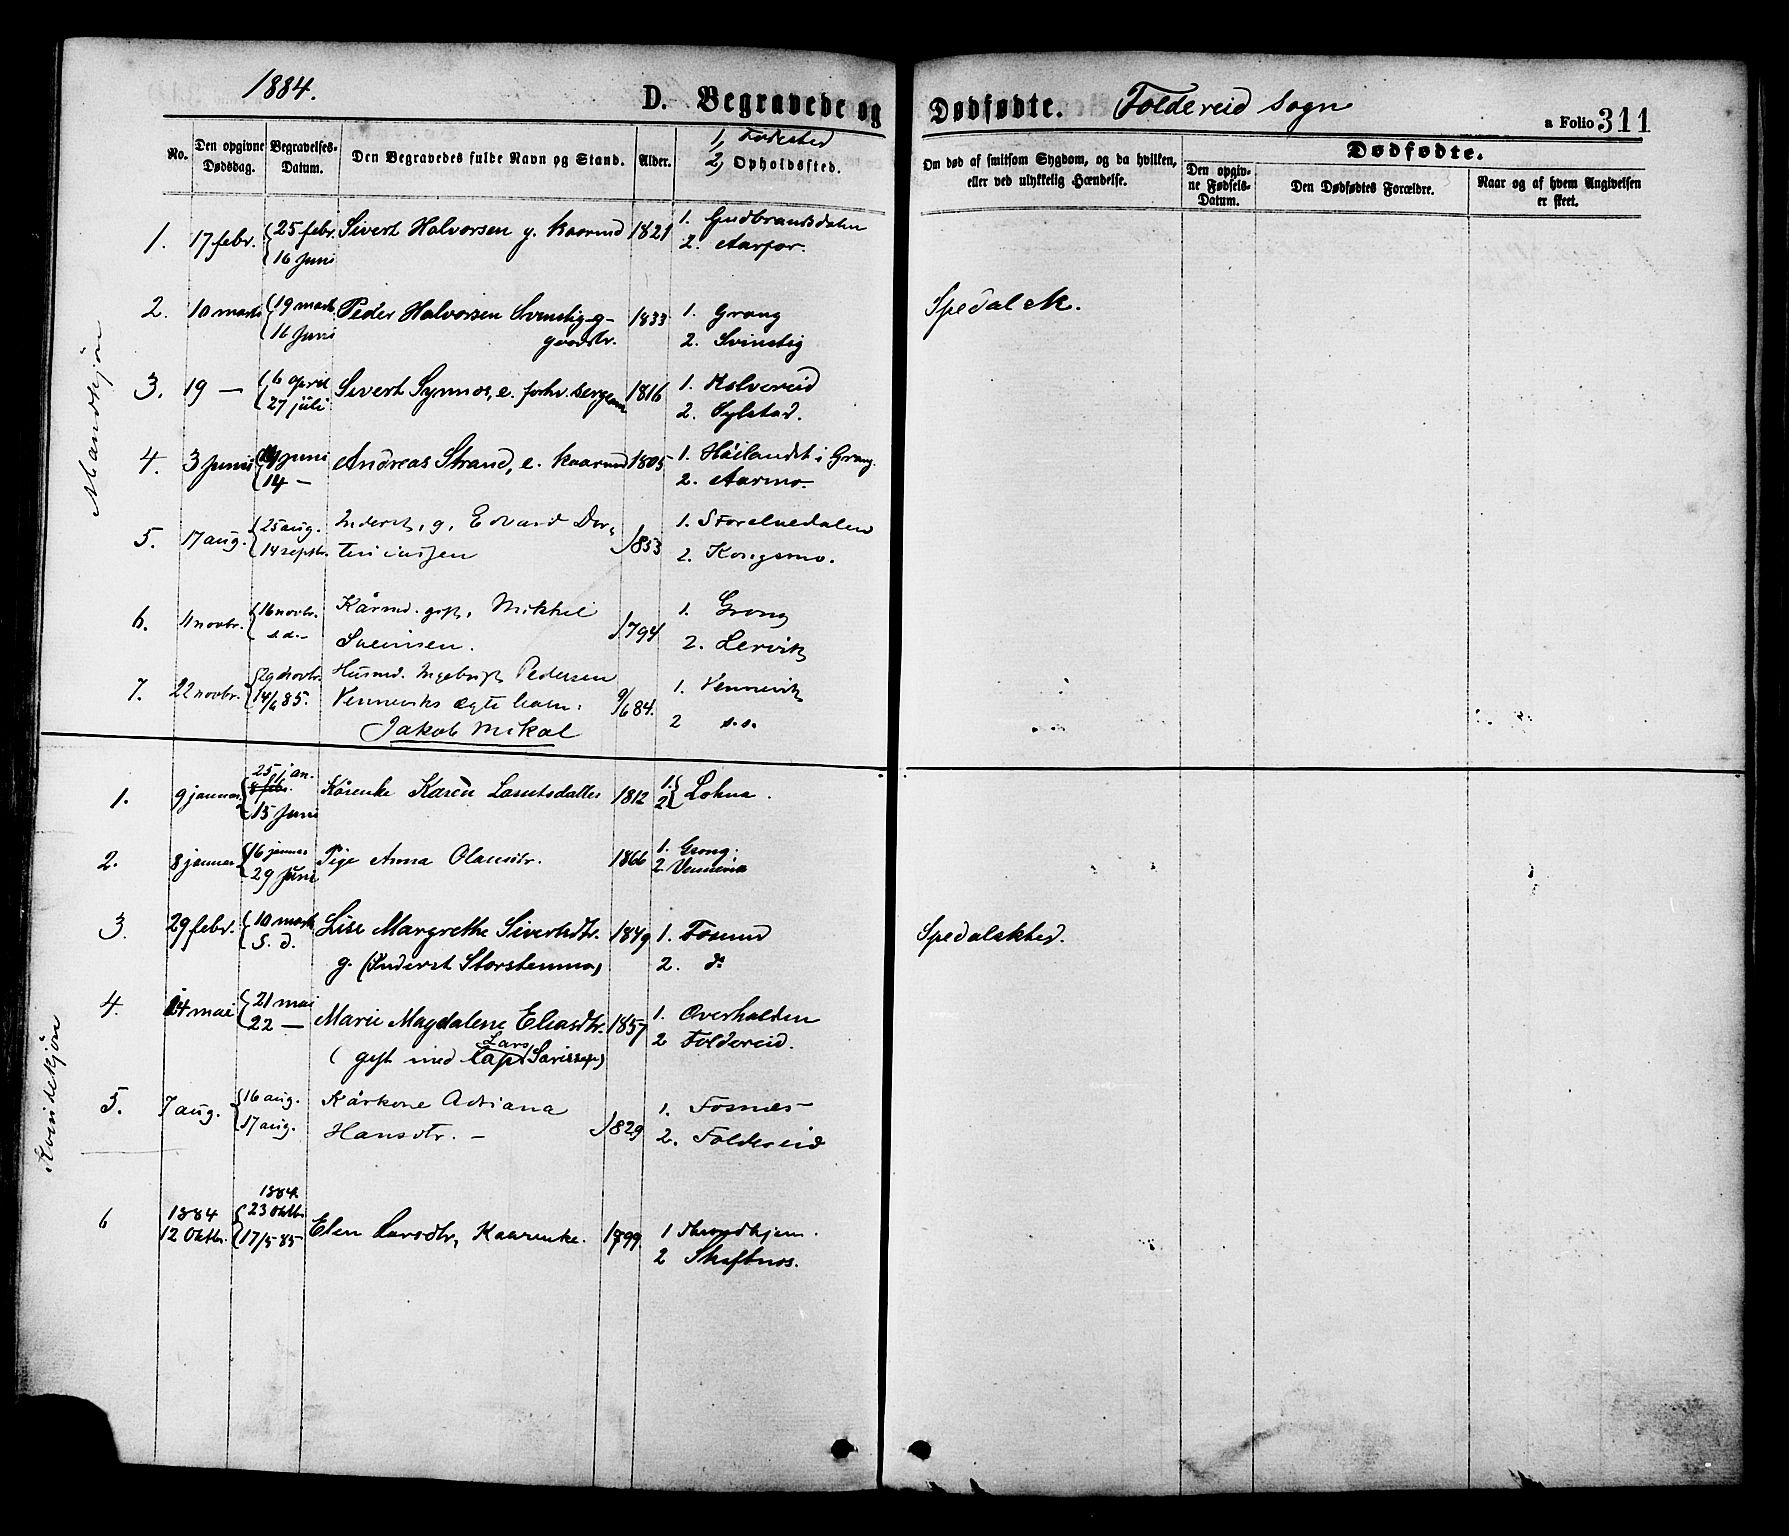 1884.
D. Begravede og Dødfødte. Foldereid Sogn
a Folio 311
No.
Den opgivne Dødsdag.
Begravelses-Datum.
Den Begravedes fulde Navn og Stand.
Alder.
1, Fødested
2, Opholdssted.
Om død af smitsom Sygdom, og da hvilken,
eller ved ulykkelig Hændelse.
Dødfødte.
Den opgivne Fødsels-Datum.
Den Dødfødtes Forældre.
Naar og af hvem Angivelsen er skeet.
Mandkjøn
1. 17 febr. 25 febr. Sivert Halvorsen g. Kaarmd 1821 1. Gudbrandsdalen
16 Juni 2. Aarfor.
2. 10 marts 19 marts Peder Halvorsen Svinstig g. 1833 1. Grong Spedalsk.
16 Juni gaardbr. 2. Svinstig
3. 19 — 6 april Sivert Synnes, e. forhv. sergeant 1816 1. Kolvereid
27 juli 2. Sylstad.
4. 3 Juni Juni Andreas Strand, e. Kaarmd 1805 1. Høilandet i Grong.
14 — 2. Aarmo.
5. 17 aug. 25 aug. Inderst, g, Edvard 1853 1. Storelvedalen
14 septbr. 2. Kongsmo.
6. 11 novbr. 16 novbr. Kårmd. gift, Mikkel 1794 1. Grong
s.d. — Sveinsen. 2. Lervik
7. 22 novbr. 29 novbr. Husmd. Ingebrigt Pedersen 9/6 84. 1. Vennevik
14/6 85. Venneviks ægte barn: 2 s.s.
Jakob Mikal
Kvindekjøn
1. 9 januar 25 jan. Kårenke Karen 1812 1. 2. Lohna.
8 febr.
15 Juni
2. 8 januar 16 januar Pige Anna Olausdtr. 1866 1. Grong.
29 Juni 2
3. 29 febr. 10 marts Lise Margrethe Sivertsdtr. 1849 1. Spedalskhed.
S. d. g. (Inderst Storstenmo) 2. do
4. 14 mai 21 mai Marie Magdalene Eliasdtr. 1857 1. Overhalden
22 — (gift med Lars 2 Foldereid.
5. 7 aug. 16 aug. Kårkone Adriana 1829 1. Fosnes
17 aug. Hansdtr. — 2. Foldereid
6 1884 1884
12 Oktbr. 23 Oktbr. Elen Larsdtr, Kaarenke. 1799. 1
17/5 85 2 Skaftnes.